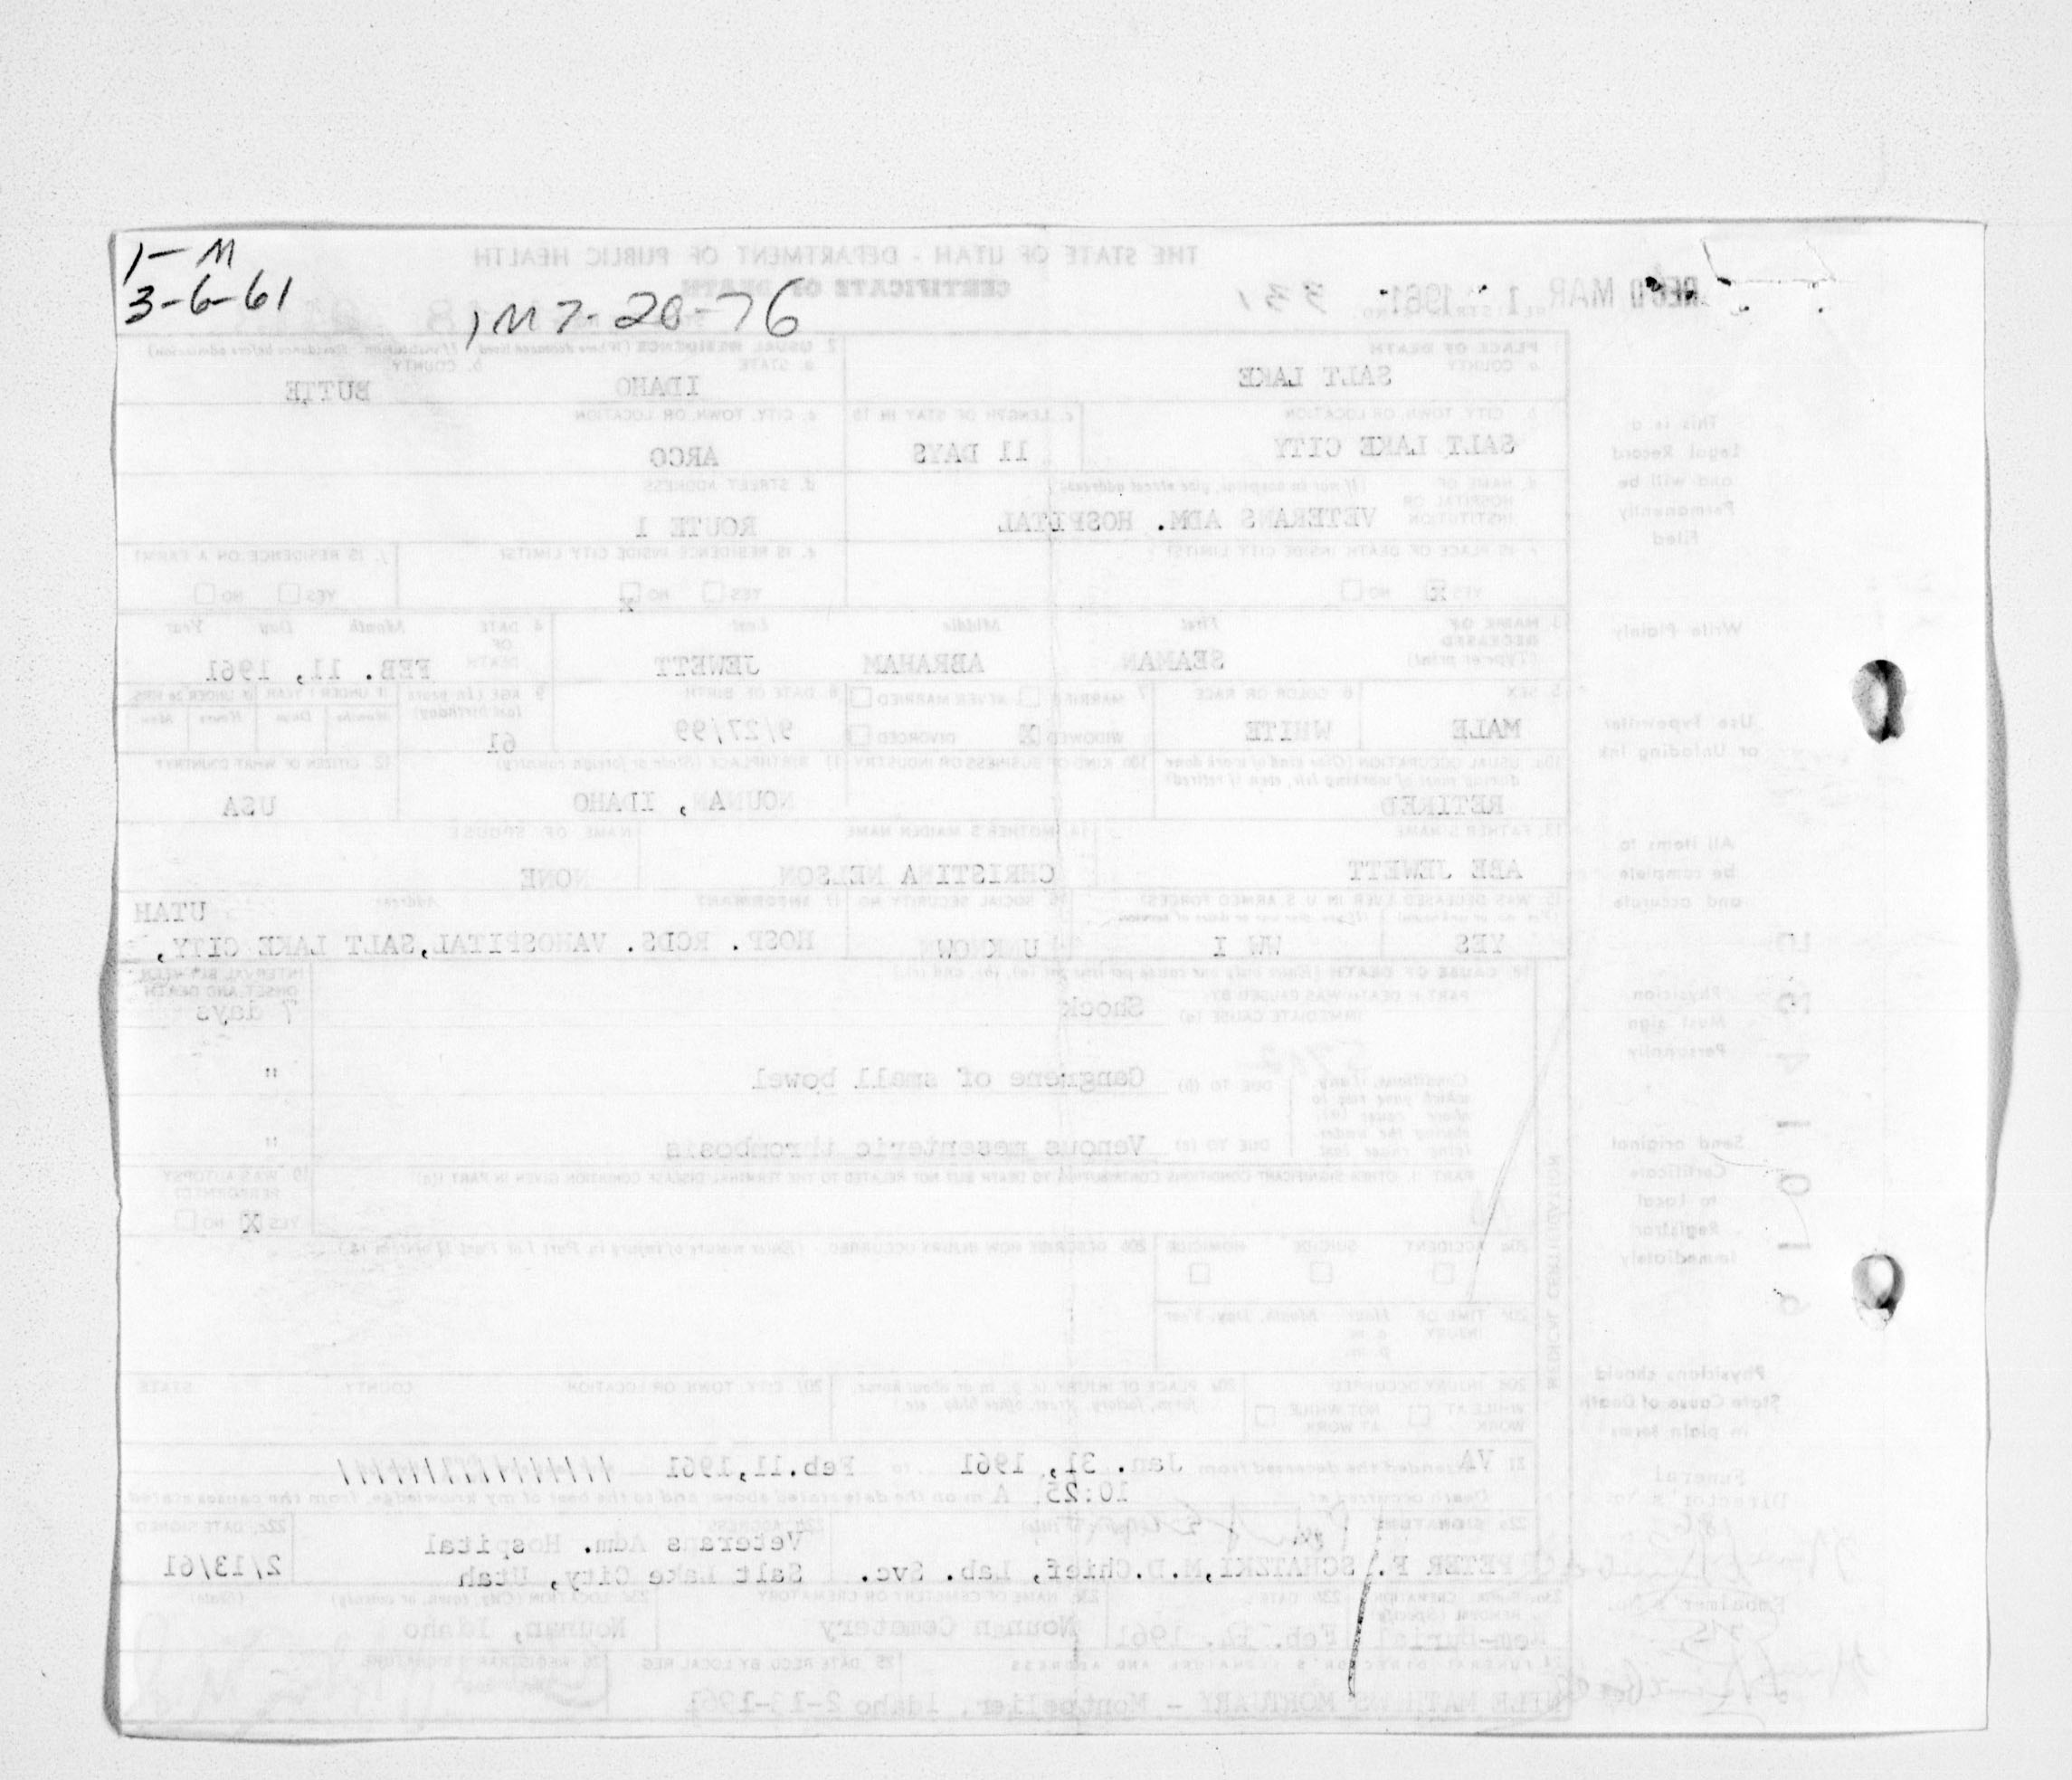 1- M
3-6-61
1 M 7-20-76
THE STATE OF UTAH - DEPARTMENT OF PUBLIC HEALTH
CERTIFICATE OF DEATH
REC'D MAR 1 1961
331
PLACE OF DEATH
a. COUNTY
SALT LAKE
2 USUAL RESIDENCE (Where deceased lived. If institution: Residence before admission)
a. STATE
IDAHO
b. COUNTY
BUTTE
b. CITY, TOWN, OR LOCATION
SALT LAKE CITY
c. LENGTH OF STAY IN 1b
11 DAYS
c. CITY, TOWN, OR LOCATION
ARCO
d. NAME OF HOSPITAL OR INSTITUTION (If not in hospital, give street address)
VETERANS ADM. HOSPITAL
d. STREET ADDRESS
ROUTE 1
e. IS PLACE OF DEATH INSIDE CITY LIMITS?
YES X NO
e. IS RESIDENCE INSIDE CITY LIMITS?
YES NO X
f. IS RESIDENCE ON A FARM?
YES NO
3. NAME OF DECEASED (Type or print)
First Middle Last
SEAMAN ABRAHAM JEWETT
4. DATE OF DEATH
Month Day Year
FEB. 11, 1961
5. SEX
MALE
6. COLOR OR RACE
WHITE
7. MARRIED NEVER MARRIED
WIDOWED X DIVORCED
8. DATE OF BIRTH
9/27/99
9. AGE (In years last birthday)
61
IF UNDER 1 YEAR IF UNDER 24 HRS.
Months Days Hours Min.
10a. USUAL OCCUPATION (Give kind of work done during most of working life, even if retired)
RETIRED
10b. KIND OF BUSINESS OR INDUSTRY
11. BIRTHPLACE (State or foreign country)
NOUNAN, IDAHO
12. CITIZEN OF WHAT COUNTRY?
USA
13. FATHER'S NAME
ABE JEWETT
14. MOTHER'S MAIDEN NAME
CHRISTINA NELSON
NAME OF SPOUSE
NONE
15. WAS DECEASED EVER IN U. S. ARMED FORCES?
(Yes, no, or unknown) (If yes, give war or dates of service)
YES WW I
16. SOCIAL SECURITY NO.
UNKNOWN
17. INFORMANT Address
HOSP. RCDS. VAHOSPITAL, SALT LAKE CITY, UTAH
18. CAUSE OF DEATH [Enter only one cause per line for (a), (b), and (c).]
INTERVAL BETWEEN ONSET AND DEATH
PART I. DEATH WAS CAUSED BY:
IMMEDIATE CAUSE (a) Shock 7 days
Conditions, if any, which gave rise to above cause (a), stating the underlying cause last.
DUE TO (b) Gangrene of small bowel "
DUE TO (c) Venous mesenteric thrombosis "
PART II. OTHER SIGNIFICANT CONDITIONS CONTRIBUTING TO DEATH BUT NOT RELATED TO THE TERMINAL DISEASE CONDITION GIVEN IN PART I(a)
19. WAS AUTOPSY PERFORMED?
YES X NO
20a. ACCIDENT SUICIDE HOMICIDE
20b. DESCRIBE HOW INJURY OCCURRED. (Enter nature of injury in Part I or Part II of item 18.)
20c. TIME OF INJURY Hour Month, Day, Year
a.m.
p.m.
20d. INJURY OCCURRED
WHILE AT WORK NOT WHILE AT WORK
20e. PLACE OF INJURY (e.g., in or about home, farm, factory, street, office bldg., etc.)
20f. CITY, TOWN, OR LOCATION COUNTY STATE
21. VA attended the deceased from Jan. 31, 1961 to Feb.11,1961
Death occurred at 10:25 A m on the date stated above, and to the best of my knowledge, from the causes stated.
22a. SIGNATURE (Degree or title)
PETER F. SCHATZKI,M.D.Chief, Lab. Svc.
22b. ADDRESS
Veterans Adm. Hospital
Salt Lake City, Utah
22c. DATE SIGNED
2/13/61
23a. BURIAL, CREMATION, REMOVAL (Specify)
Rem-burial
23b. DATE
Feb. 14, 1961
23c. NAME OF CEMETERY OR CREMATORY
Nounan Cemetery
23d. LOCATION (City, town, or county) (State)
Nounan, Idaho
24. FUNERAL DIRECTOR'S SIGNATURE AND ADDRESS
MATHEWS MORTUARY - Montpelier, Idaho 2-13-1961
25. DATE RECD BY LOCAL REG.
26. REGISTRAR'S SIGNATURE
MEDICAL CERTIFICATION
This is a
Legal Record
and will be
Permanently
Filed
Write Plainly
Use Typewriter
or Unfading Ink
All items to
be complete
and accurate
Physician
Must sign
Personally
Send original
Certificate
to Local
Registrar
Immediately
Physicians should
State Cause of Death
in plain terms
Funeral
Director's No:
Embalmer's No: